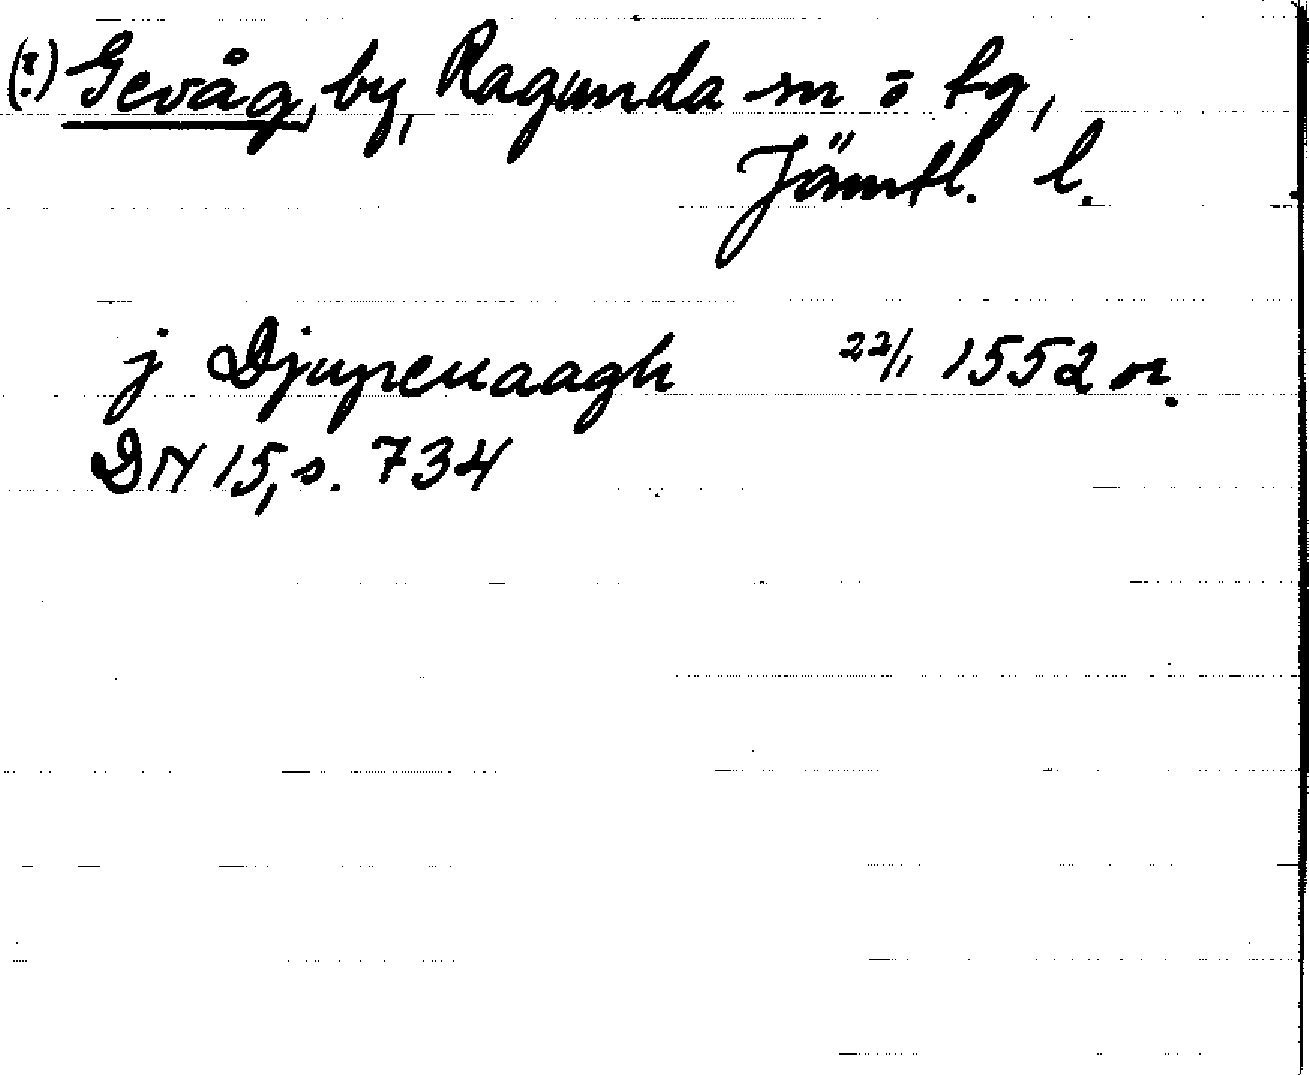 (?) Gevåg, by, Ragunda sn o tg,
Jämtl. l.
j Djupeuaagh 22/1 1552 or.
DN 15, s. 734